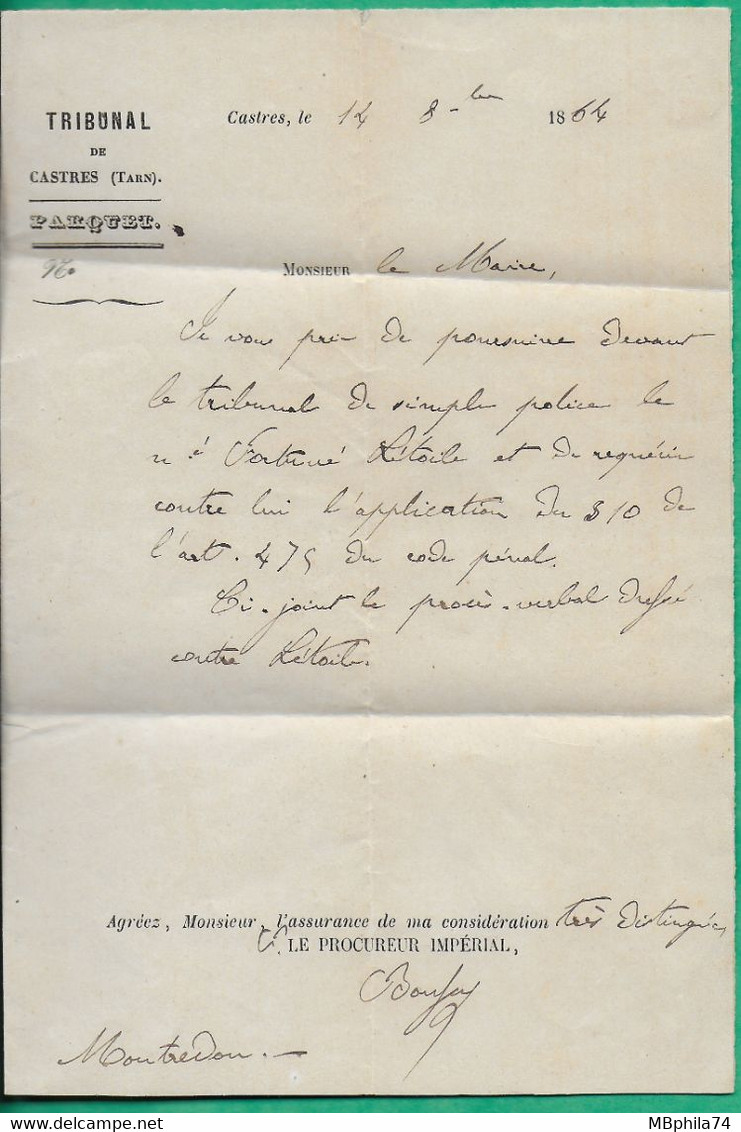 TRIBUNAL
DE
CASTRES (TARN).
PARQUET.
No
Castres, le 14 8-bre 1864
MONSIEUR le Maire,
Je vous prie de poursuivre devant
le tribunal de simple police le
n.é Fortuné Létoile et de requérir
contre lui l'application du § 10 de
l'art. 475 du code pénal.
Ci-joint le procès-verbal dressé
contre Létoile.
Agréez, Monsieur, l'assurance de ma considération très distinguée
LE PROCUREUR IMPÉRIAL,
Montredon.—
MBphila74